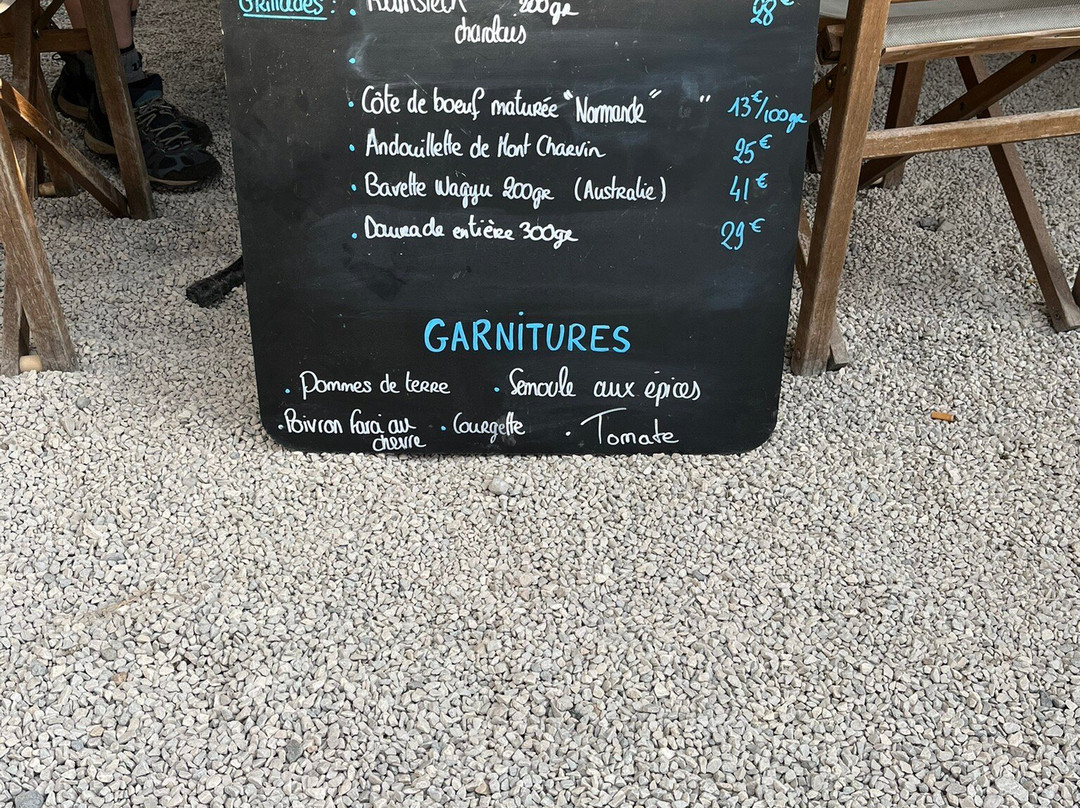 Grillades : . Rumsteck 200gr 28€
charolais
.
. Côte de boeuf maturée "Normande" " 13€/100gr
. Andouillette de Mont Charvin 25€
. Bavette Wagyu 200gr (Australie) 41€
. Daurade entière 300gr 29€
GARNITURES
. Pommes de terre . Semoule aux épices
. Poivron farci au . Courgette . Tomate
chevre